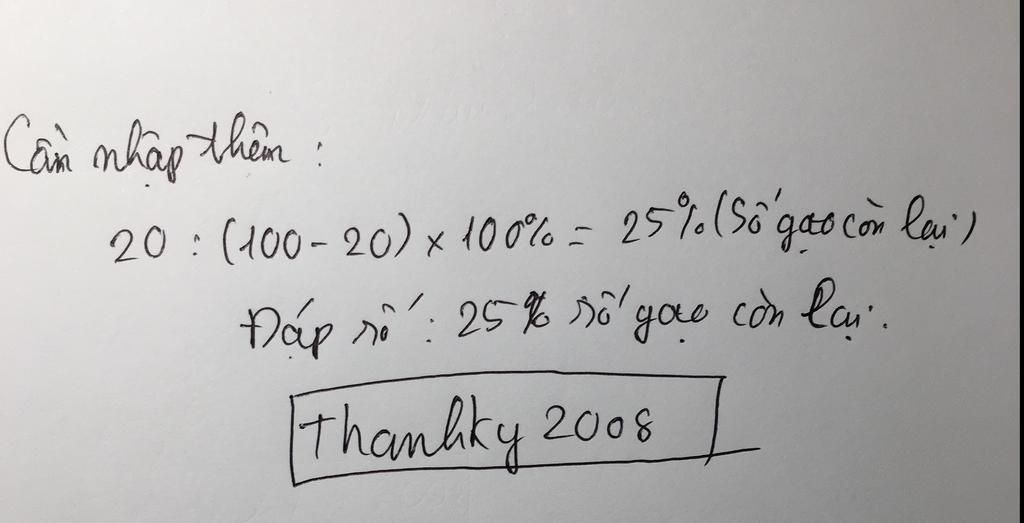 Cần nhập thêm :
20 : (100 - 20) × 100% = 25% (Số gạo còn lại)
Đáp số : 25% số gạo còn lại.
thanhky 2008